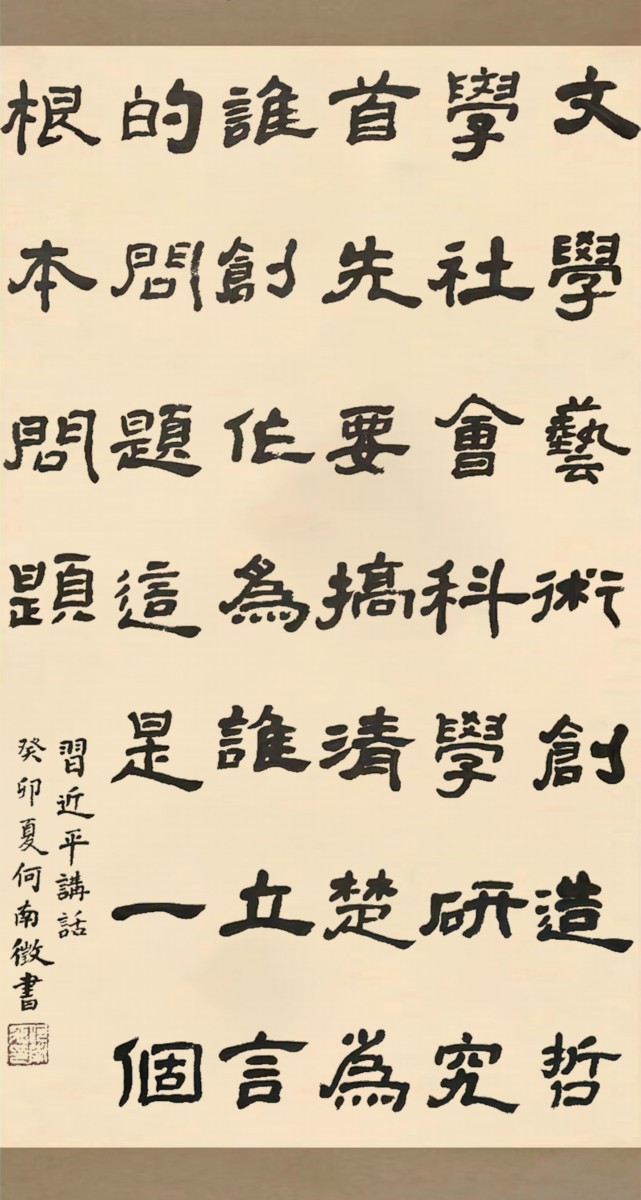 文學藝術創造哲
學社會科學研究
首先要搞清楚為
誰創作為誰立言
的問題這是一個
根本問題
習近平講話
癸卯夏何南徵書